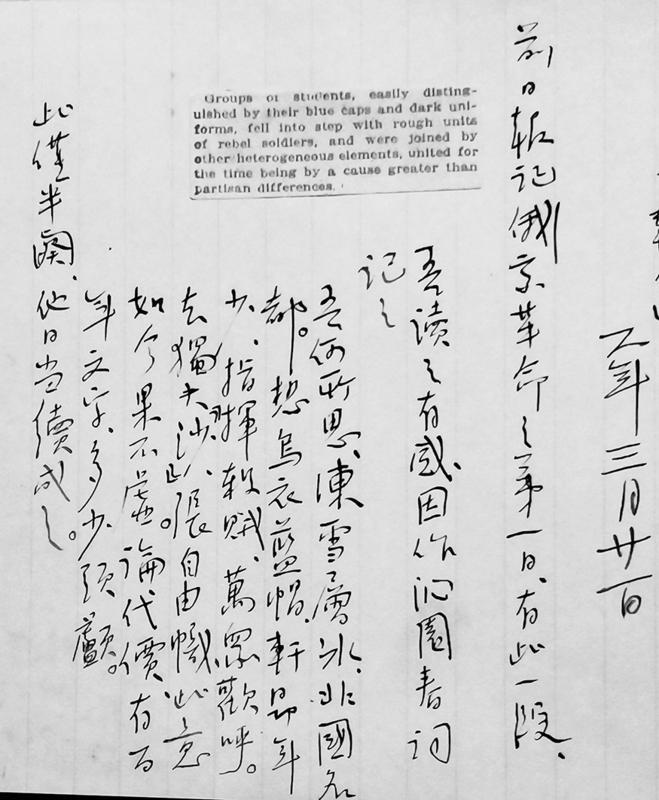 六年三月廿一日
前日報記俄京革命之第一日、有此一段、
Groups of students, easily disting-
uished by their blue caps and dark uni-
forms, fell into step with rough units
of rebel soldiers, and were joined by
other heterogeneous elements, united for
the time being by a cause greater than
partisan differences.
吾讀之有感、因作沁園春詞
記之
吾何所思、凍雪層冰、北國名
都。想烏衣藍帽、軒昂年
少、指揮殺賊、萬眾歡呼。
去獨夫「沙」、張自由幟、此意
如今果不虛。論代價、有百
年文字、多少頭顱。
此僅半闋、他日当續成之。